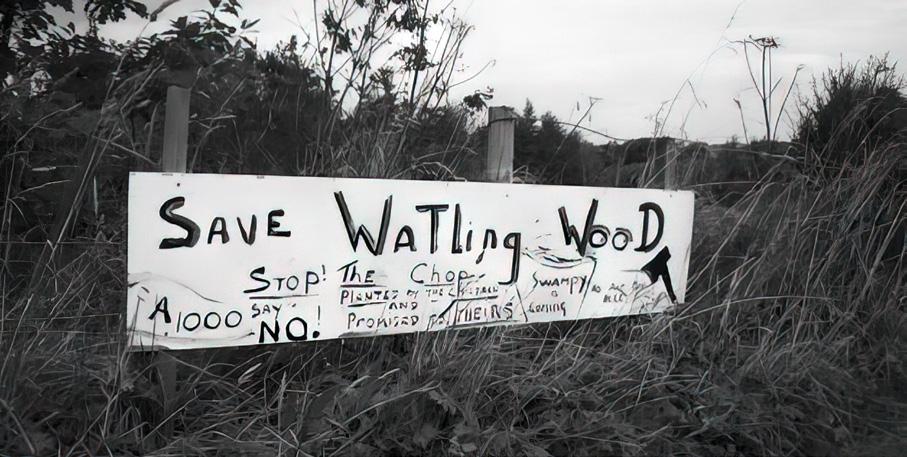 SAVE WATling WOOD
STOP! THE CHOP
PLANTED BY THE CHILDREN
AND
PROMISED THEIRS
A 1000 SAY
NO!
SWAMPY